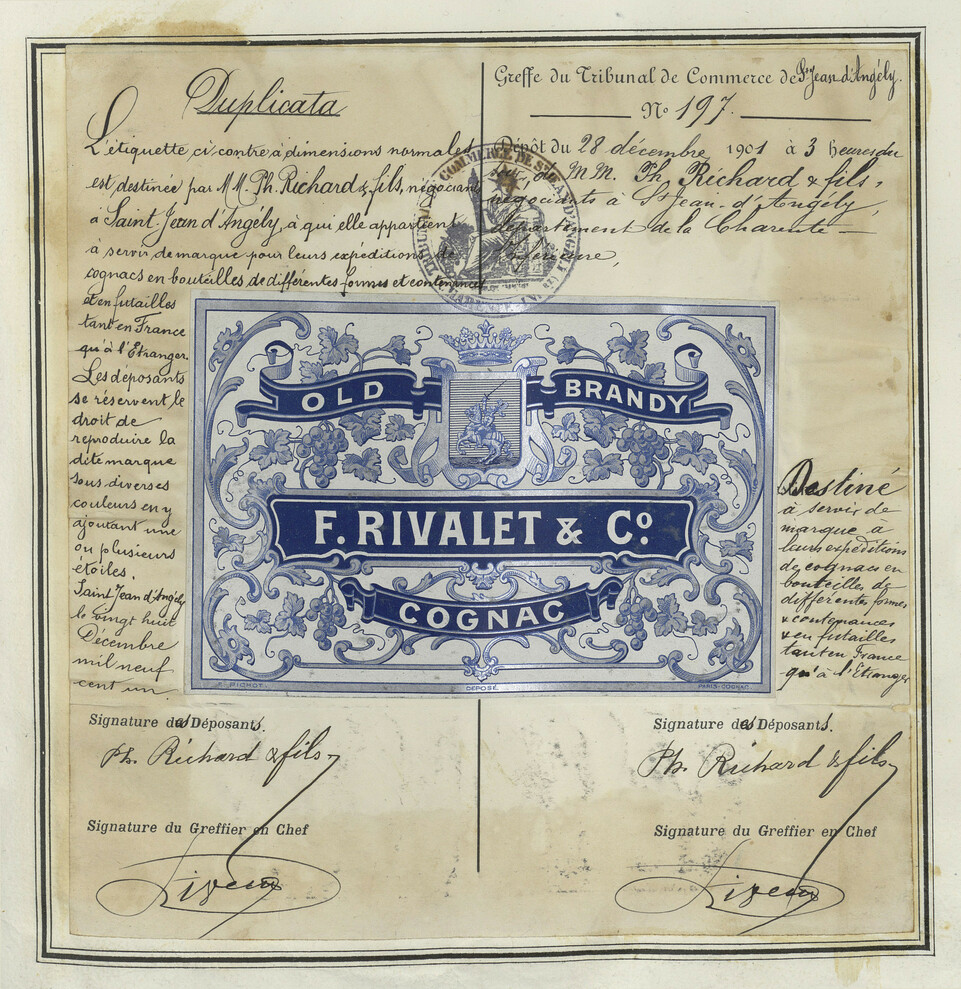 Duplicata
L'étiquette ci contre à dimensions normales
est destinée par M.M. Ph. Richard & fils, négociants
à Saint-Jean d'Angély, à qui elle appartient
à servir de marque pour leurs expéditions de
cognacs en bouteilles de différentes formes et contenances
et en futailles
tant en France
qu'à l'Etranger.
Les déposants
se réservent le
droit de
reproduire la
dite marque
sous diverses
couleurs en y
ajoutant une
ou plusieurs
étoiles.
Saint Jean d'Angély
le vingt huit
Décembre
mil neuf
cent un.
Greffe du Tribunal de Commerce de St Jean d'Angély.
No 197.
Dépôt du 28 décembre 1901 à 3 heures du
soir de MM. Ph. Richard & fils,
négociants à St Jean-d'Angély,
département de la Charente-
Inférieure,
TRIBUNAL DE COMMERCE DE ST JEAN D'ANGELY
OLD BRANDY
F. RIVALET & Co.
COGNAC
DÉPOSÉ
PARIS-COGNAC
Destiné
à servir de
marque à
leurs expéditions
de cognacs en
bouteilles de
différentes formes
& contenances
& en futailles
tant en France
qu'à l'Etranger
Signature des Déposants.
Ph. Richard & fils
Signature du Greffier en Chef
Signature des Déposants.
Ph. Richard & fils
Signature du Greffier en Chef